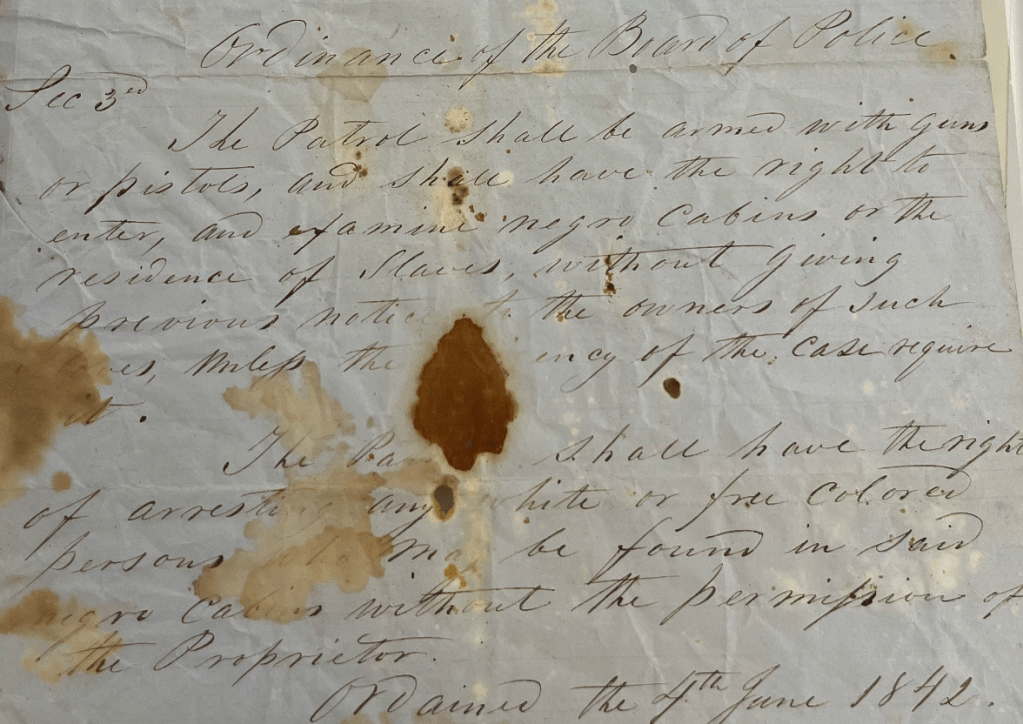 Ordinance of the Board of Police
Sec 3rd
The Patrol shall be armed with guns
or pistols, and shall have the right to
enter, and examine negro cabins or the
residence of Slaves, without giving
previous notice the owners of such
unless the of the case require
it.
The shall have the right
of arresting any white or free colored
persons be found in said
negro cabins without the permission of
the Proprietor.
Ordained the 4th June 1842.